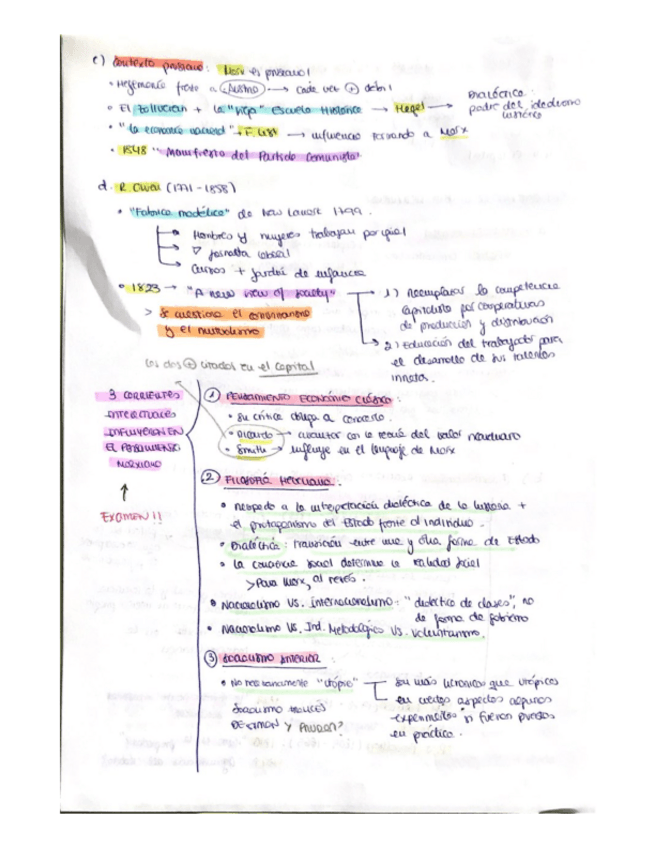 c) Contexto prusiano: Marx es prusiano!
• Hegemonía frente a Austria → cada vez + débil
• El + la "vieja" Escuela Histórica → Hegel → Dialéctica: padre del idealismo histórico
• "La economía nacional" → F. List → influencia formando a Marx
• 1848 "Manifiesto del Partido Comunista"
d. R. Owen (1771-1858)
• "Fábrica modélica" de New Lanark 1799.
Hombres y mujeres trabajan por igual
∇ jornada laboral
Cursos + jardín de infancia
• 1823 → "A new view of society"
1) Reemplazar la competencia
capitalista por cooperativas
de producción y distribución
2) Educación del trabajador para
el desarrollo de sus talentos
innatos.
> Se cuestiona el
y el
los dos + citados en el Capital
3 CORRIENTES
INTELECTUALES
INFLUYERON EN
EL PENSAMIENTO
MARXIANO
↑
EXAMEN!!
1 PENSAMIENTO ECONÓMICO CLÁSICO:
• Su crítica obliga a conocerlo.
• Ricardo → con la teoría del valor
• Smith → influye en el lenguaje de Marx
2 FILOSOFÍA HEGELIANA:
• Respecto a la interpretación dialéctica de la historia +
el protagonismo del Estado frente al individuo.
• Dialéctica: transición entre una y otra forma de Estado
• La conciencia social determina la realidad social
> Para Marx, al revés.
• Nacionalismo VS. Internacionalismo: "dialéctica de clases", no
de forma de gobierno
• Nacionalismo VS. Ind. Metodológico VS. Voluntarismo.
3 SOCIALISMO ANTERIOR:
• No necesariamente "utópico"
Son más que utópicos
en ciertos aspectos algunos
experimentos sí fueron puestos
en práctica.
SOCIALISMO FRANCÉS